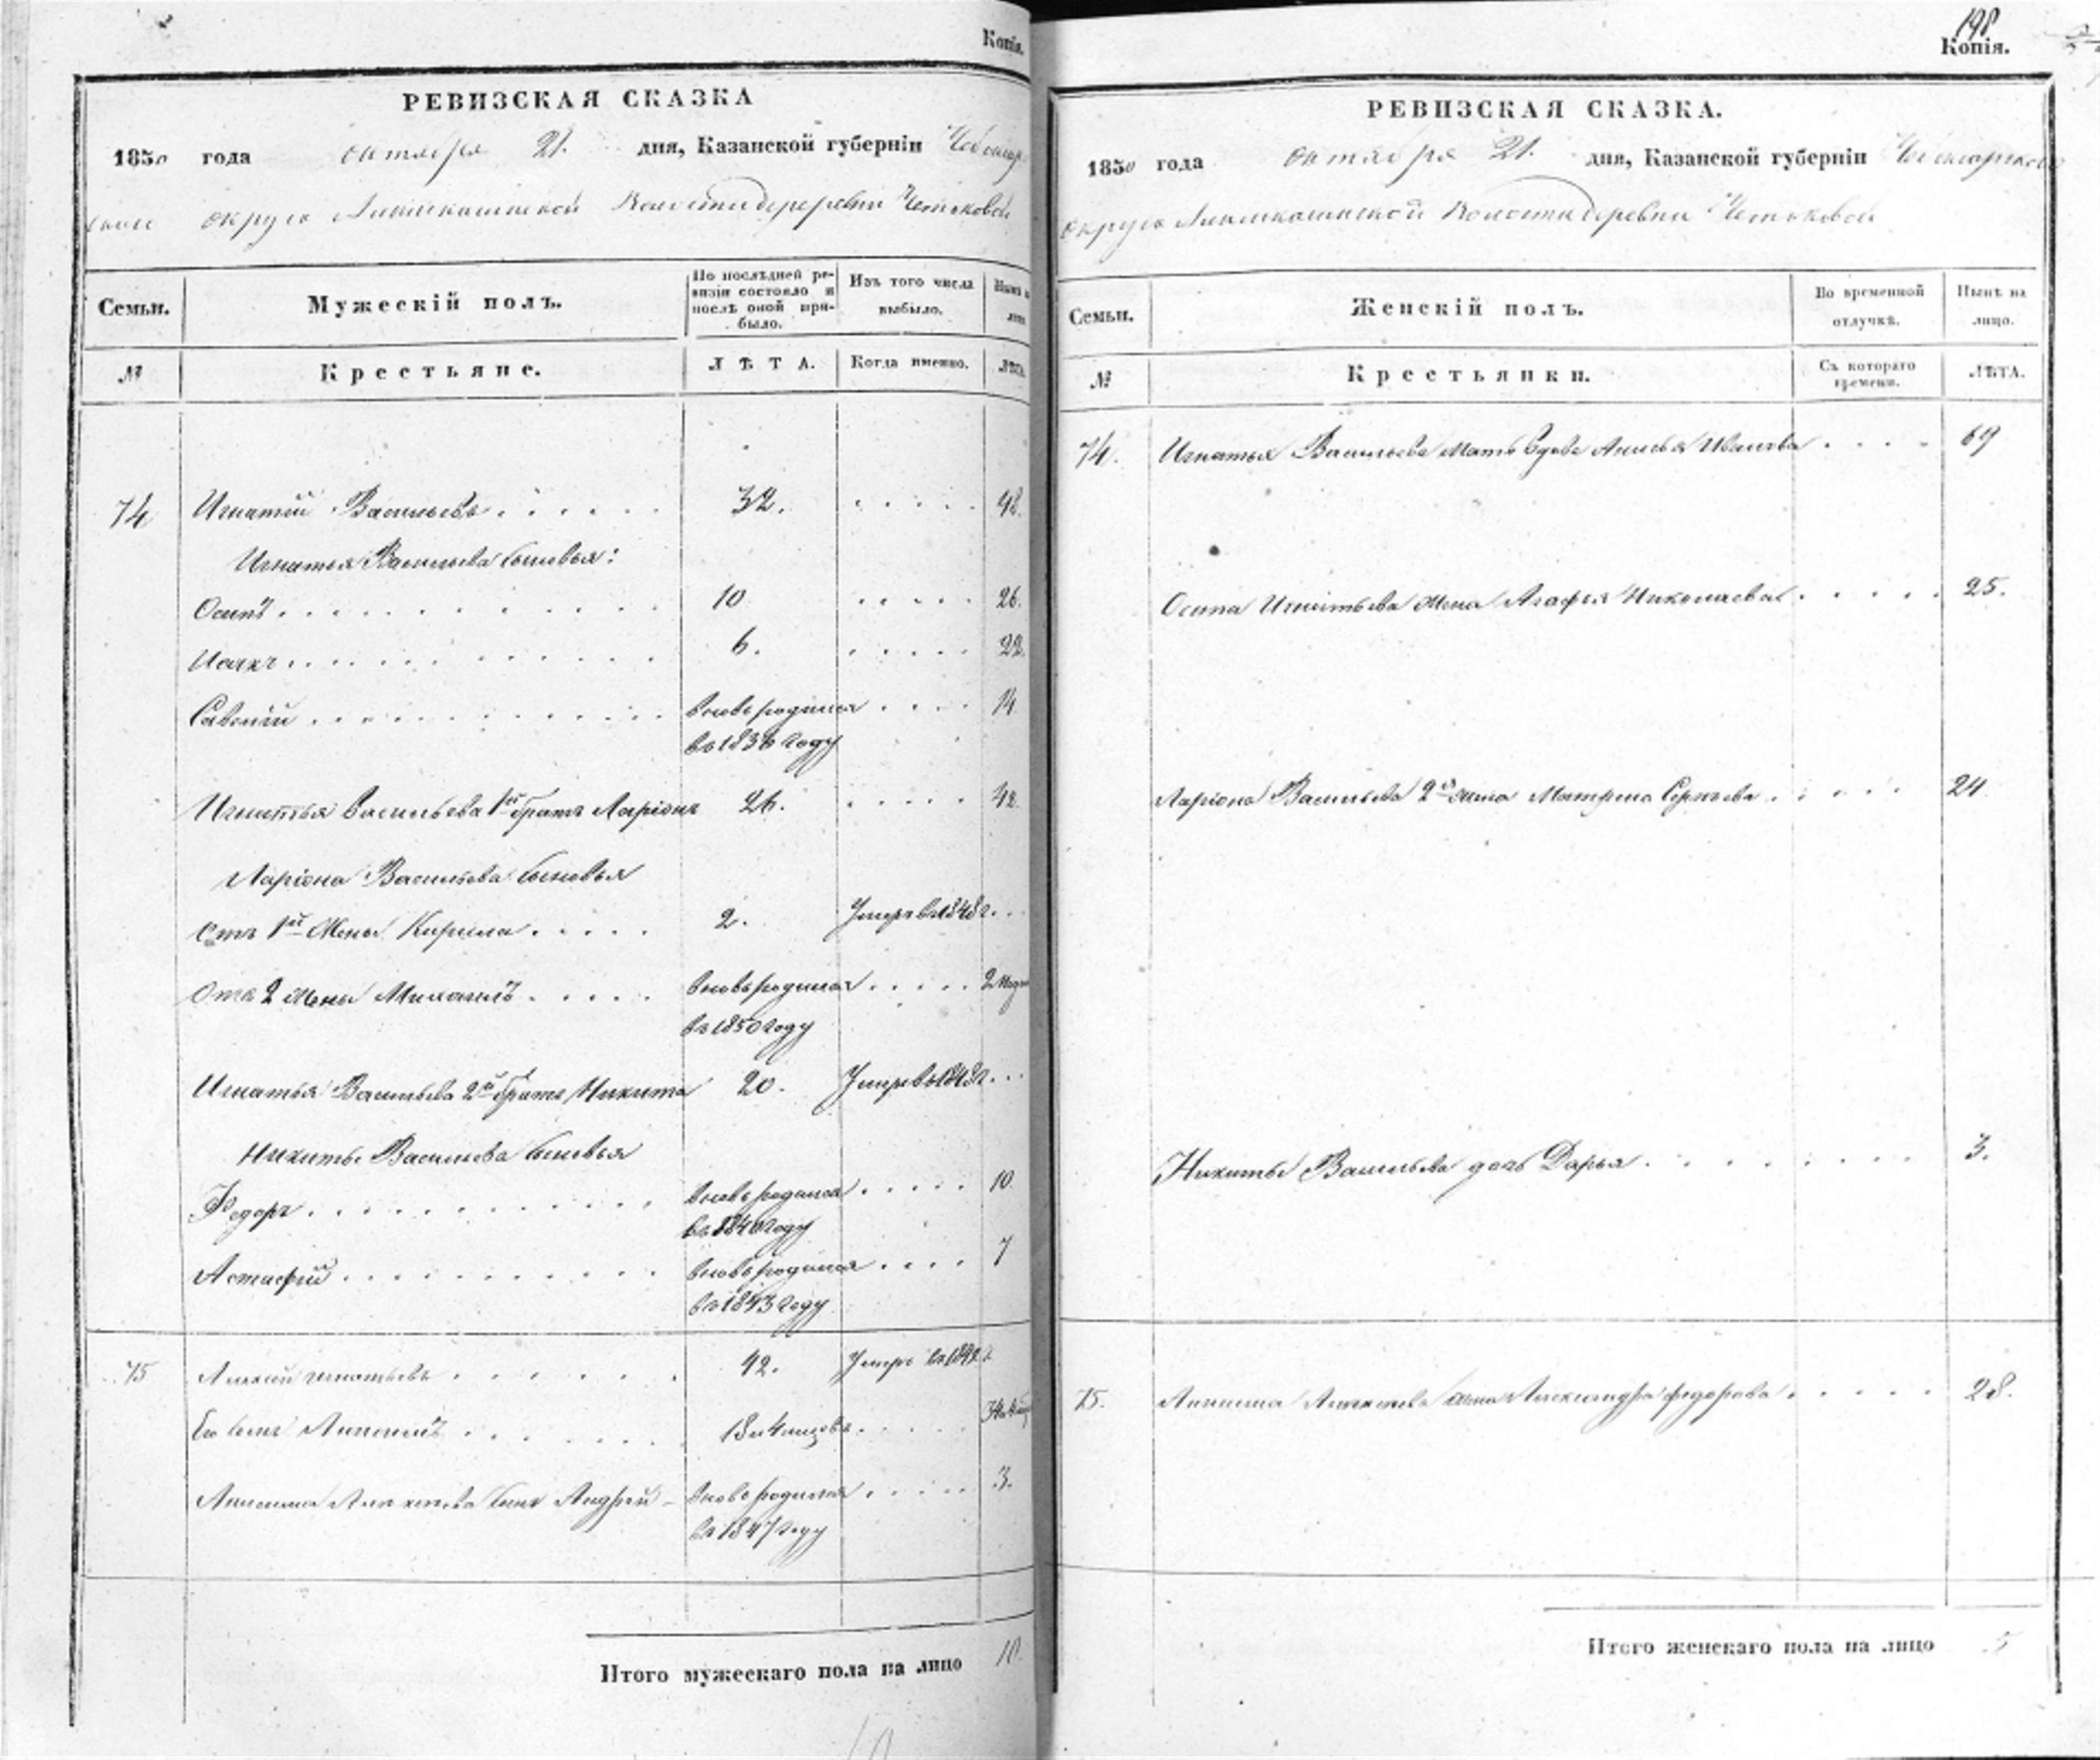 Копія.
РЕВИЗСКАЯ СКАЗКА
1850 года октября 21. дня, Казанской губерніи Чебоксар
ской округи Волости деревни
Семьи. Мужескій полъ. По послѣдней ревизіи состояло и послѣ оной прибыло. Изъ того числа выбыло. Нынѣ на лицо
№ Крестьяне. ЛѢТА. Когда именно. ЛѢТА.
74 Игнатій Васильевъ 32. 48.
Игнатья Васильева сыновья:
Осипъ 10 26.
Исакъ 6. 22.
Савелій вновь родился 14
въ 1836 году
Игнатья Васильева 1й братъ Ларіонъ 26. 42
Ларіона Васильева сыновья
Отъ 1й Жены Кирила 2. Умеръ въ 1848 г.
Отъ 2 жены Михаилъ вновь родился 2 нед
въ 1850 году
Игнатья Васильева 2й братъ Никита 20. Умеръ въ 1848 г.
Никиты Васильева сыновья
Федоръ вновь родился 10
въ 1840 году
Астафій вновь родился 7
въ 1843 году
75 Игнатьевъ 42. Умеръ въ
Его сынъ Анисимъ
Анисима сынъ Андрей вновь родился 3.
въ 1847 году
Итого мужескаго пола на лицо 10.
198
Копія.
РЕВИЗСКАЯ СКАЗКА.
1850 года октября 21. дня, Казанской губерніи Чебоксарской
округи Волости деревни
Семьи. Женскій полъ. Во временной отлучкѣ. Нынѣ на лицо.
№ Крестьянки. Съ котораго времени. ЛѢТА.
74. Игнатья Васильева Мать вдова Анисья Иванова 69
Осипа Игнатьева жена Агафья Николаева 25.
Ларіона Васильева 2я жена Матрена Сергѣева 24
Никиты Васильева дочь Дарья 3.
75. Анисима Алексѣева жена Александра Федорова 28.
Итого женскаго пола на лицо 5